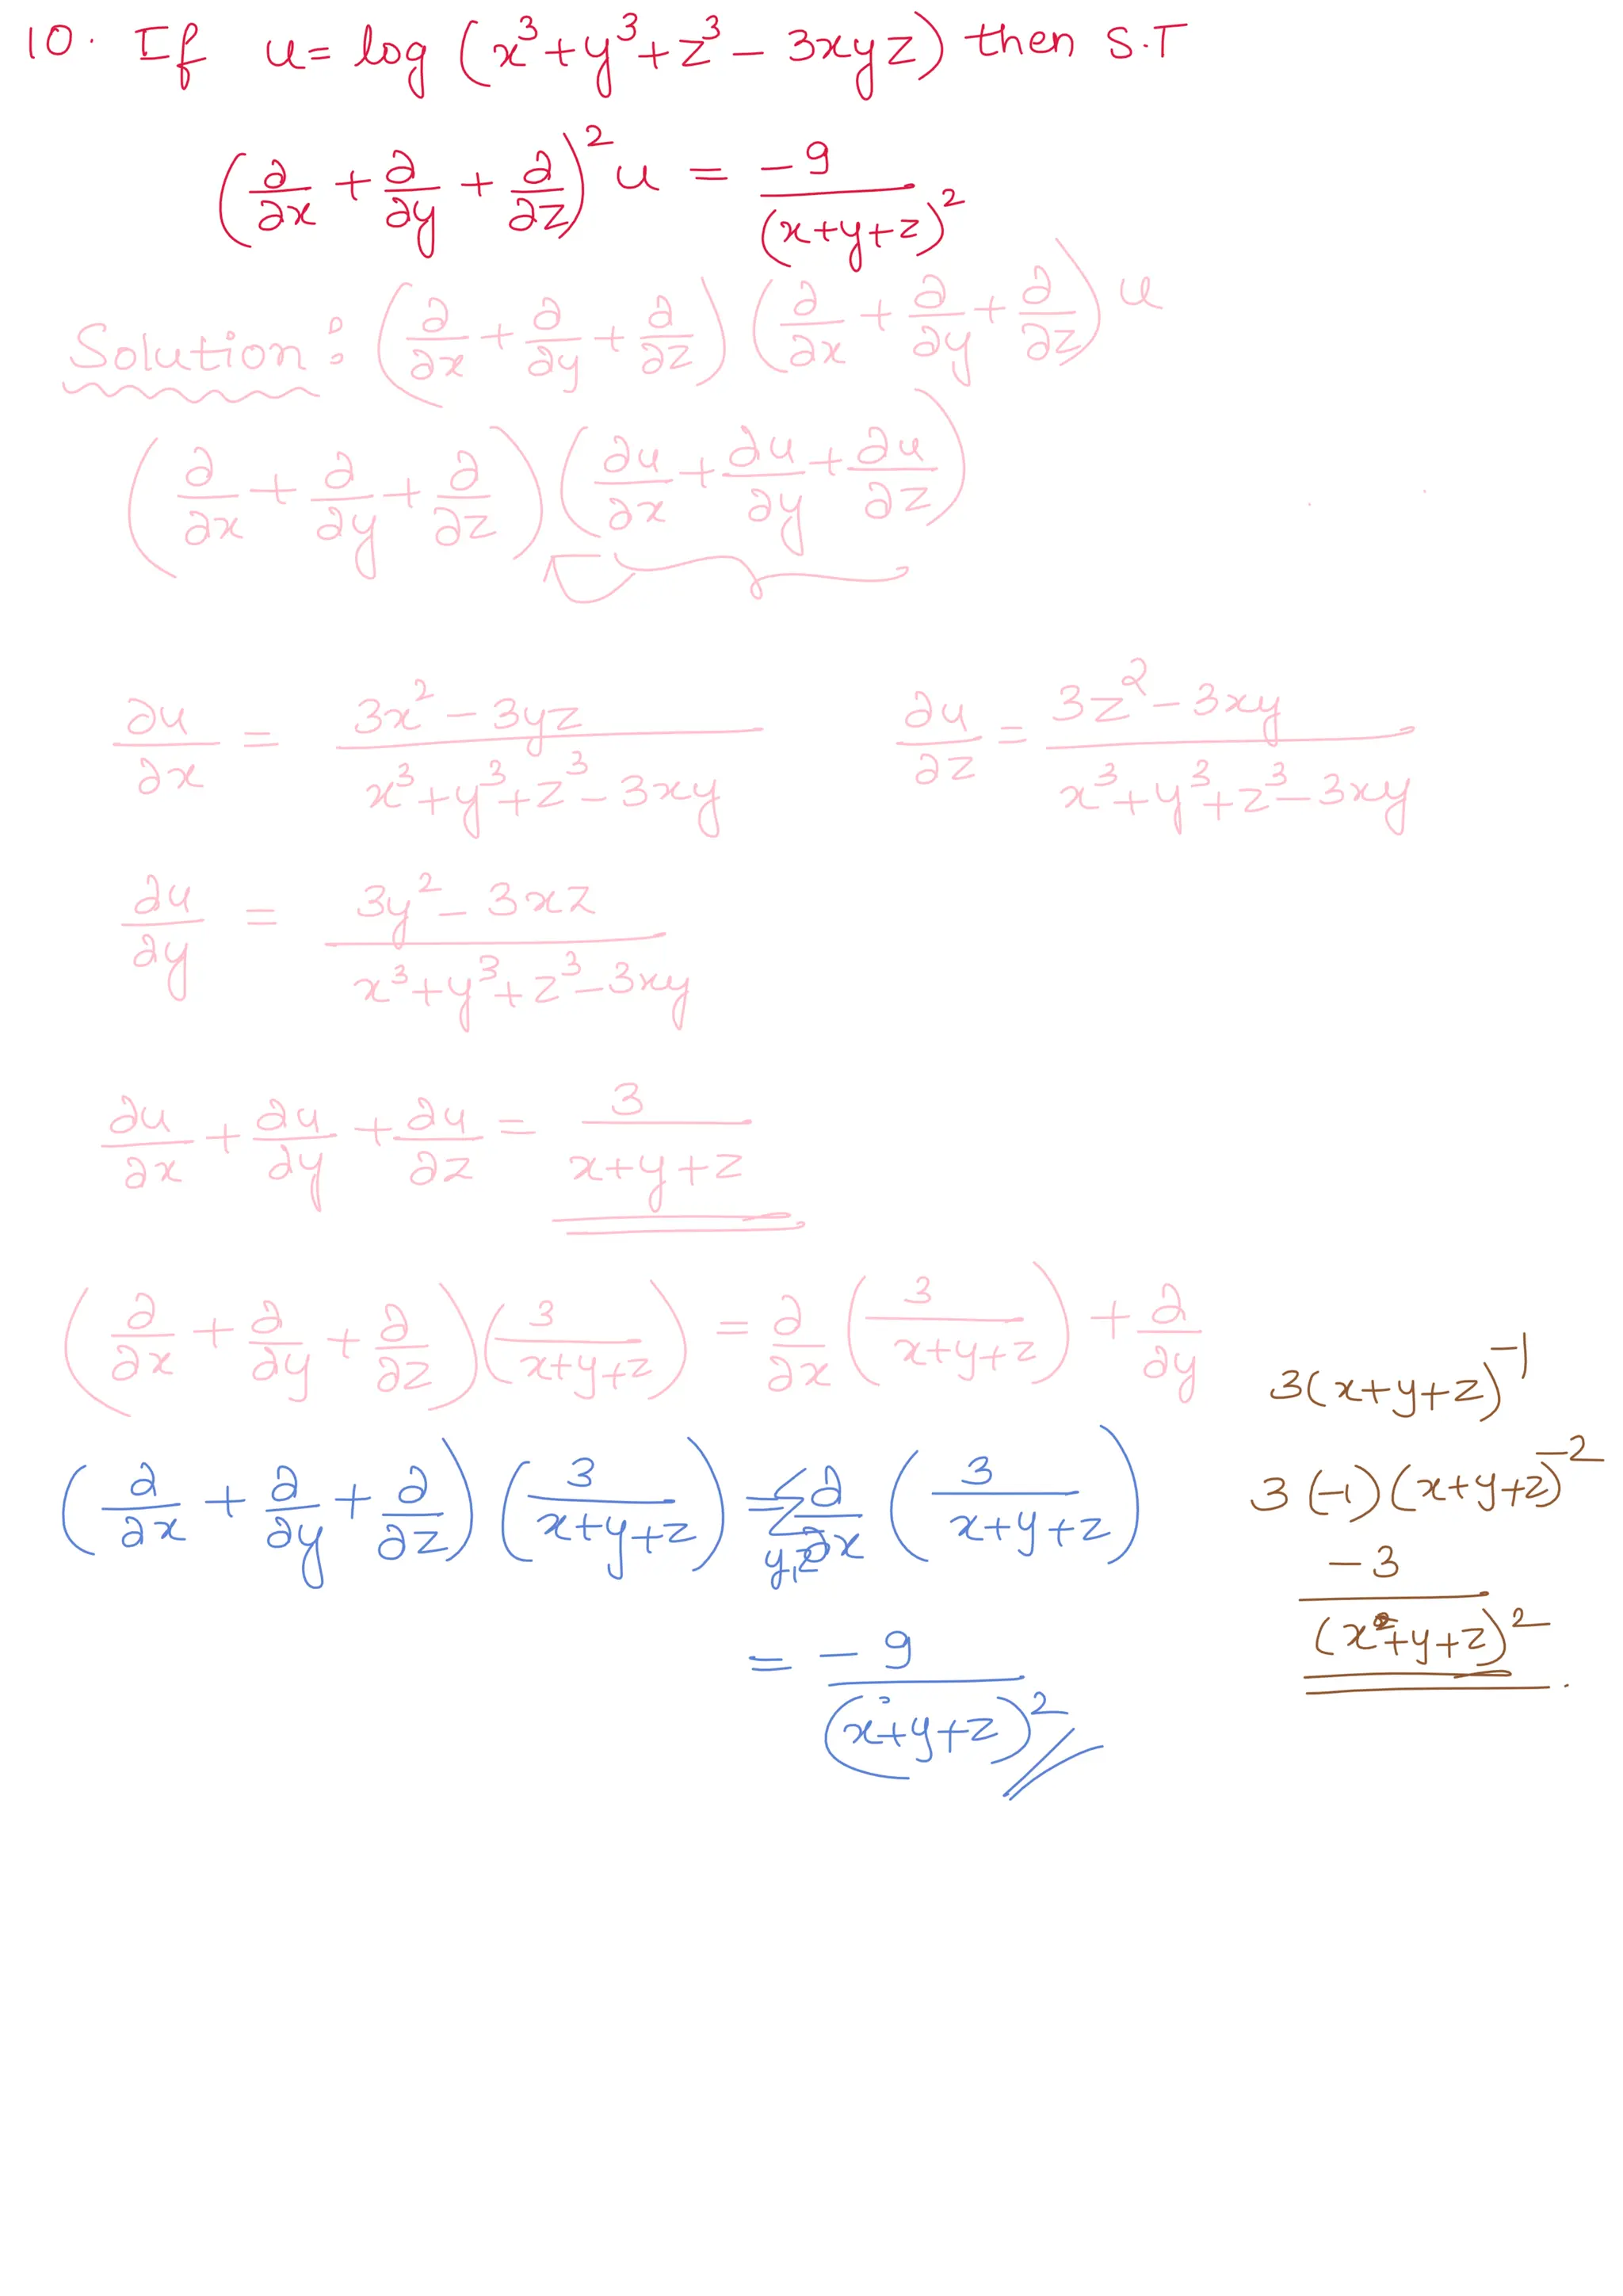 10. If u = log (x³+y³+z³ - 3xyz) then S.T
(∂/∂x + ∂/∂y + ∂/∂z)² u = -9/(x+y+z)²
Solution: (∂/∂x + ∂/∂y + ∂/∂z) (∂/∂x + ∂/∂y + ∂/∂z) u
(∂/∂x + ∂/∂y + ∂/∂z) (∂u/∂x + ∂u/∂y + ∂u/∂z)
∂u/∂x = (3x² - 3yz)/(x³+y³+z³-3xy) ∂u/∂z = (3z² - 3xy)/(x³+y³+z³-3xy)
∂u/∂y = (3y² - 3xz)/(x³+y³+z³-3xy)
∂u/∂x + ∂u/∂y + ∂u/∂z = 3/(x+y+z)
(∂/∂x + ∂/∂y + ∂/∂z) (3/(x+y+z)) = ∂/∂x (3/(x+y+z)) + ∂/∂y
3(x+y+z)⁻¹
(∂/∂x + ∂/∂y + ∂/∂z) (3/(x+y+z)) = Σ y,z ∂/∂x (3/(x+y+z))
3(-1)(x+y+z)⁻²
-3/(x+y+z)²
= -9/(x+y+z)²